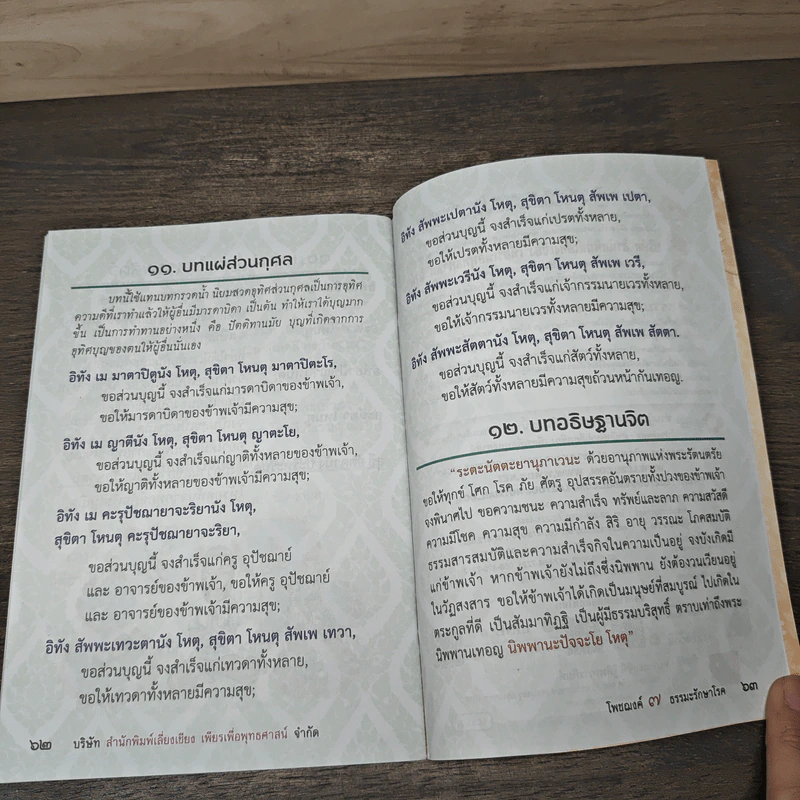 ๑๑. บทแผ่ส่วนกุศล
บทนี้ใช้แทนบทกรวดน้ำ นิยมสวดอุทิศส่วนกุศลเป็นการอุทิศ
ความดีที่เราทำแล้วให้ผู้อื่นมีมารดาบิดา เป็นต้น ทำให้เราได้บุญมาก
ขึ้น เป็นการทำทานอย่างหนึ่ง คือ ปัตติทานมัย บุญที่เกิดจากการ
อุทิศบุญของตนให้ผู้อื่นนั่นเอง
อิทัง เม มาตาปิตูนัง โหตุ, สุขิตา โหนตุ มาตาปิตะโร,
ขอส่วนบุญนี้ จงสำเร็จแก่มารดาบิดาของข้าพเจ้า,
ขอให้มารดาบิดาของข้าพเจ้ามีความสุข;
อิทัง เม ญาตีนัง โหตุ, สุขิตา โหนตุ ญาตะโย,
ขอส่วนบุญนี้ จงสำเร็จแก่ญาติทั้งหลายของข้าพเจ้า,
ขอให้ญาติทั้งหลายของข้าพเจ้ามีความสุข;
อิทัง เม คะรุปัชฌายาจะริยานัง โหตุ,
สุขิตา โหนตุ คะรุปัชฌายาจะริยา,
ขอส่วนบุญนี้ จงสำเร็จแก่ครู อุปัชฌาย์
และ อาจารย์ของข้าพเจ้า, ขอให้ครู อุปัชฌาย์
และ อาจารย์ของข้าพเจ้ามีความสุข;
อิทัง สัพพะเทวะตานัง โหตุ, สุขิตา โหนตุ สัพเพ เทวา,
ขอส่วนบุญนี้ จงสำเร็จแก่เทวดาทั้งหลาย,
ขอให้เทวดาทั้งหลายมีความสุข;
๖๒ บริษัท สำนักพิมพ์เลี่ยงเชียง เพียรเพื่อพุทธศาสน์ จำกัด
อิทัง สัพพะเปตานัง โหตุ, สุขิตา โหนตุ สัพเพ เปตา,
ขอส่วนบุญนี้ จงสำเร็จแก่เปรตทั้งหลาย,
ขอให้เปรตทั้งหลายมีความสุข;
อิทัง สัพพะเวรีนัง โหตุ, สุขิตา โหนตุ สัพเพ เวรี,
ขอส่วนบุญนี้ จงสำเร็จแก่เจ้ากรรมนายเวรทั้งหลาย,
ขอให้เจ้ากรรมนายเวรทั้งหลายมีความสุข;
อิทัง สัพพะสัตตานัง โหตุ, สุขิตา โหนตุ สัพเพ สัตตา.
ขอส่วนบุญนี้ จงสำเร็จแก่สัตว์ทั้งหลาย,
ขอให้สัตว์ทั้งหลายมีความสุขถ้วนหน้ากันเทอญ.
๑๒. บทอธิษฐานจิต
“ระตะนัตตะยานุภาเวนะ ด้วยอานุภาพแห่งพระรัตนตรัย
ขอให้ทุกข์ โศก โรค ภัย ศัตรู อุปสรรคอันตรายทั้งปวงของข้าพเจ้า
จงพินาศไป ขอความชนะ ความสำเร็จ ทรัพย์และลาภ ความสวัสดี
ความมีโชค ความสุข ความมีกำลัง สิริ อายุ วรรณะ โภคสมบัติ
ธรรมสารสมบัติและความสำเร็จกิจในความเป็นอยู่ จงบังเกิดมี
แก่ข้าพเจ้า หากข้าพเจ้ายังไม่ถึงซึ่งนิพพาน ยังต้องวนเวียนอยู่
ในวัฏสงสาร ขอให้ข้าพเจ้าได้เกิดเป็นมนุษย์ที่สมบูรณ์ ไปเกิดใน
ตระกูลที่ดี เป็นสัมมาทิฏฐิ เป็นผู้มีธรรมบริสุทธิ์ ตราบเท่าถึงพระ
นิพพานเทอญ นิพพานะปัจจะโย โหตุ”
โพชฌงค์ ๗ ธรรมะรักษาโรค ๖๓